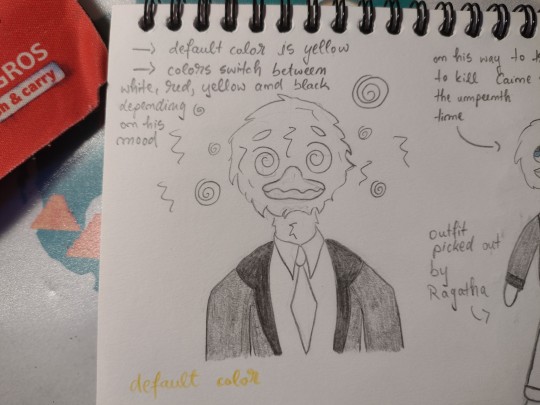 → default color is yellow
→ colors switch between
white, red, yellow and black
depending
on his
mood
on his way to
to kill Caine
the umpeenth
time
outfit
picked out
by
Ragatha
default color
GROS
& carry